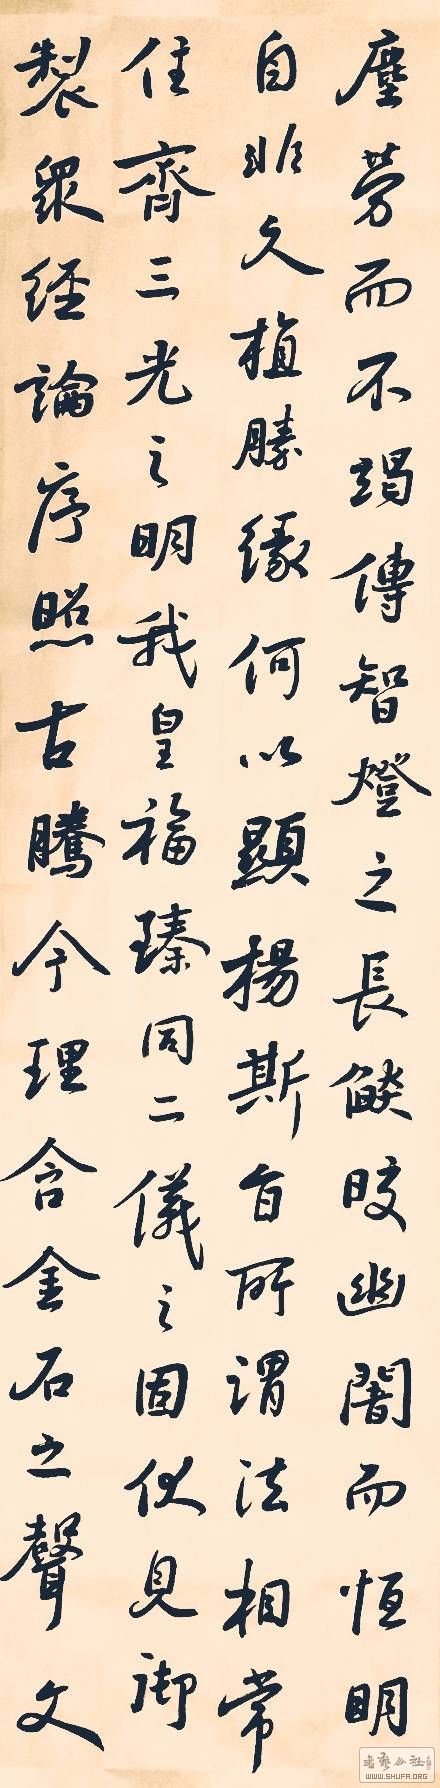 塵勞而不竭傳智燈之長燄皎幽闇而恒明
自非久植勝緣何以顯揚斯旨所謂法相常
住齊三光之明我皇福臻同二儀之固伏見御
製眾經論序照古騰今理含金石之聲文
WWW.SHUFA.ORG